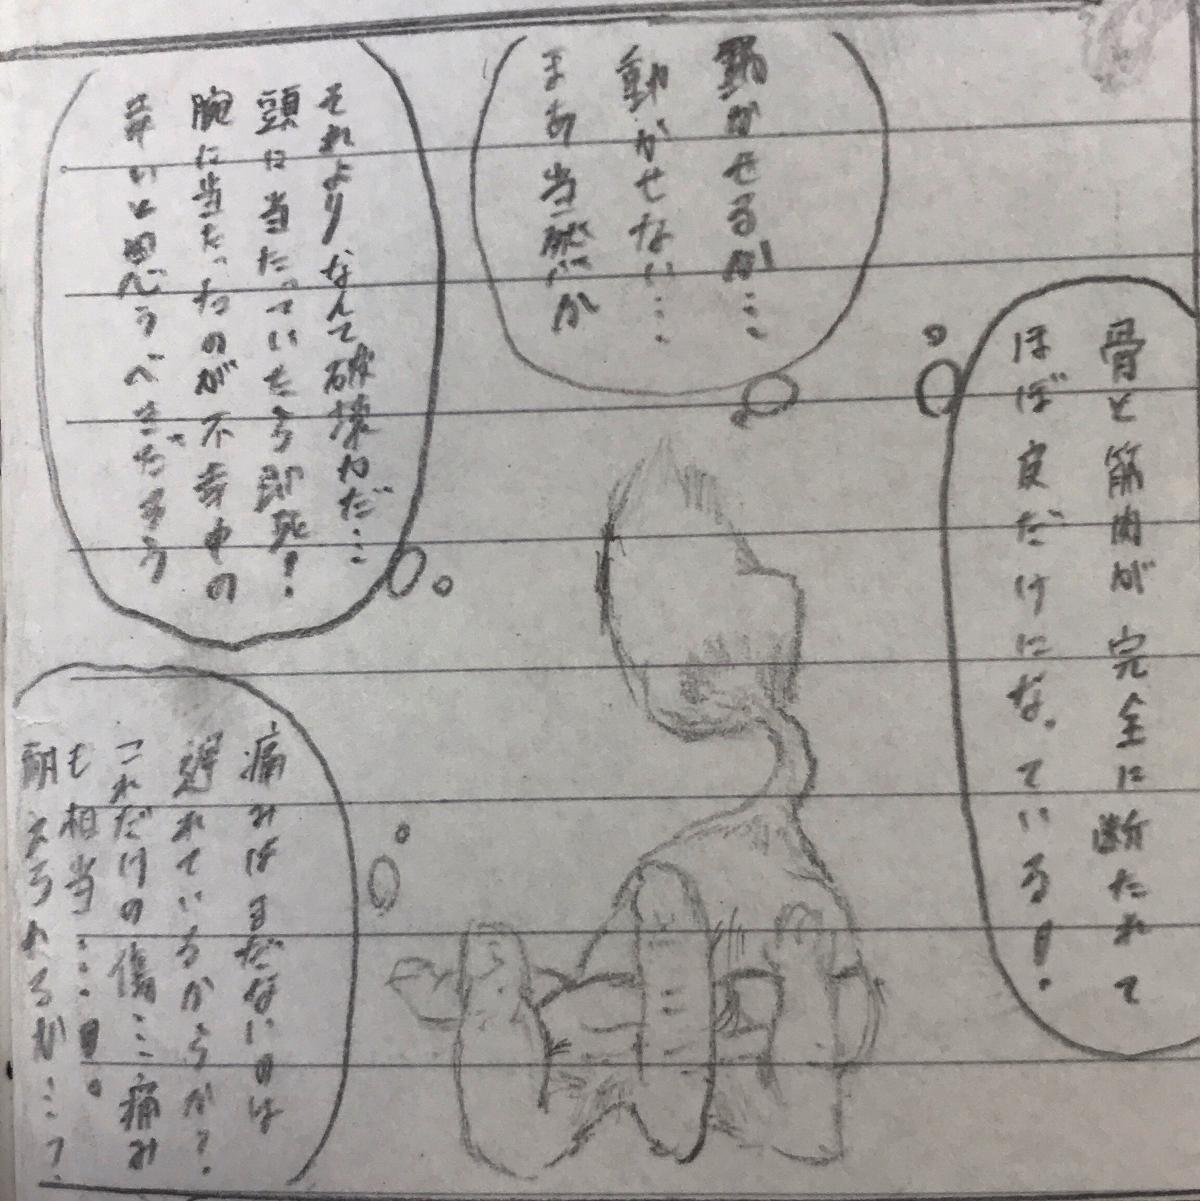 骨と筋肉が完全に断たれて
ほぼ皮だけになっている!
動かせるか…
動かせない…
まあ当然か
それよりなんて破壊力だ…
頭に当たっていたら即死!
腕に当たったのが不幸中の
幸いと思うべきだろう
痛みはまだないのは
遅れているからか?
これだけの傷…痛み
も相当…!。
耐えられるか…?